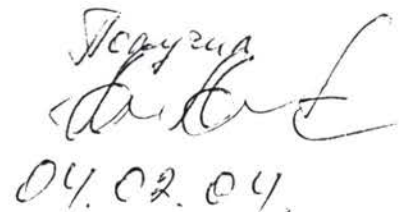 Получил
04.02.04.